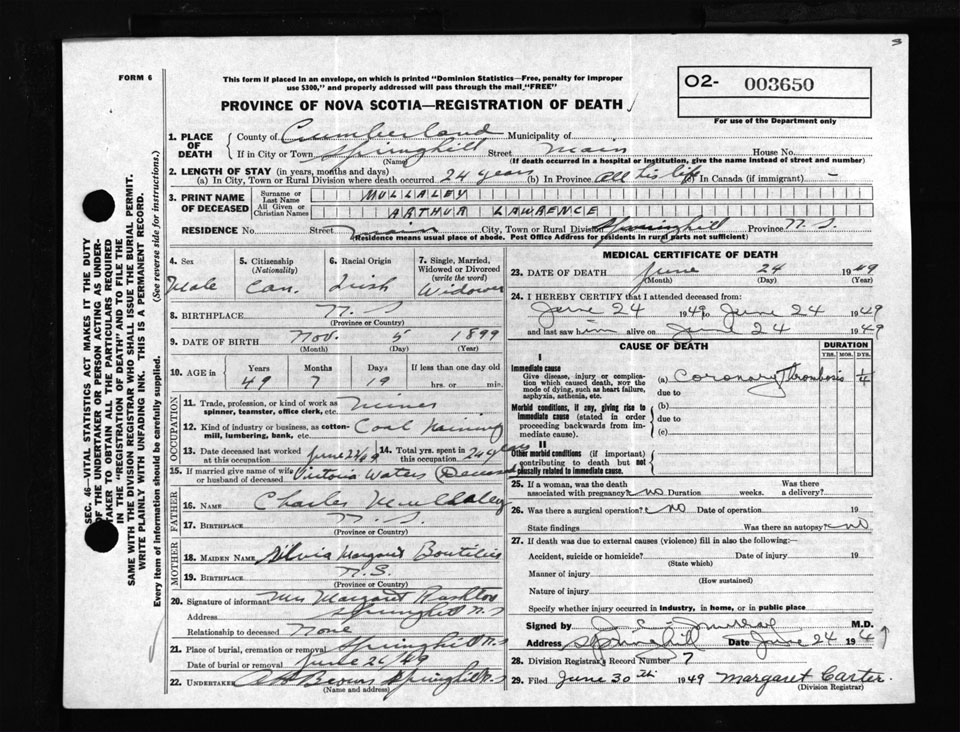 3
FORM 6
This form if placed in an envelope, on which is printed "Dominion Statistics—Free, penalty for improper
use $300," and properly addressed will pass through the mail "FREE"
PROVINCE OF NOVA SCOTIA—REGISTRATION OF DEATH
02- 003650
For use of the Department only
SEC. 46—VITAL STATISTICS ACT MAKES IT THE DUTY
OF THE UNDERTAKER OR PERSON ACTING AS UNDER-
TAKER TO OBTAIN ALL THE PARTICULARS REQUIRED
IN THE "REGISTRATION OF DEATH" AND TO FILE THE
SAME WITH THE DIVISION REGISTRAR WHO SHALL ISSUE THE BURIAL PERMIT.
WRITE PLAINLY WITH UNFADING INK. THIS IS A PERMANENT RECORD.
Every item of information should be carefully supplied. (See reverse side for instructions.)
1. PLACE OF DEATH
County of Cumberland Municipality of
If in City or Town Springhill Street Main House No.
(Name) (If death occurred in a hospital or institution, give the name instead of street and number)
2. LENGTH OF STAY (in years, months and days)
(a) In City, Town or Rural Division where death occurred 24 years (b) In Province All his life (c) In Canada (if immigrant) -
3. PRINT NAME OF DECEASED
Surname or Last Name MULLALEY
All Given or Christian Names ARTHUR LAWRENCE
RESIDENCE No. Street Main City, Town or Rural Division Springhill Province N.S.
(Residence means usual place of abode. Post Office Address for residents in rural parts not sufficient)
4. Sex Male
5. Citizenship (Nationality) Can.
6. Racial Origin Irish
7. Single, Married, Widowed or Divorced (write the word) Widower
8. BIRTHPLACE N. S
(Province or Country)
9. DATE OF BIRTH Nov. 5 1899
(Month) (Day) (Year)
10. AGE in Years 49 Months 7 Days 19 If less than one day old hrs. or min.
OCCUPATION
11. Trade, profession, or kind of work as spinner, teamster, office clerk, etc. miner
12. Kind of industry or business, as cotton-mill, lumbering, bank, etc. Coal Mining
13. Date deceased last worked at this occupation June 49
14. Total yrs. spent in this occupation 24 years
15. If married give name of wife or husband of deceased Victoria Waters (Deceased
FATHER
16. NAME Charles Mullaley
17. BIRTHPLACE N. S
(Province or Country)
MOTHER
18. MAIDEN NAME Silvia Margaret Boutilier
19. BIRTHPLACE N.S.
(Province or Country)
20. Signature of informant Mrs Margaret
Address Springhill N.S
Relationship to deceased None
21. Place of burial, cremation or removal Springhill N.S
Date of burial or removal June 26/49
22. UNDERTAKER Brown Springhill N.S
(Name and address)
MEDICAL CERTIFICATE OF DEATH
23. DATE OF DEATH June 24 1949
(Month) (Day) (Year)
24. I HEREBY CERTIFY that I attended deceased from:
June 24 1949 to June 24 1949
and last saw him alive on June 24 1949
CAUSE OF DEATH DURATION
YRS. MOS. DYS.
I
Immediate cause
Give disease, injury or complication which caused death, nor the mode of dying, such as heart failure, asphyxia, asthenia, etc.
(a) Coronary Thrombosis 1/4
due to
Morbid conditions, if any, giving rise to immediate cause (stated in order proceeding backwards from immediate cause).
(b)
due to
(c)
II
Other morbid conditions (if important) contributing to death but not causally related to immediate cause.
25. If a woman, was the death associated with pregnancy? no Duration weeks. Was there a delivery?
26. Was there a surgical operation? No Date of operation 19
State findings Was there an autopsy? no
27. If death was due to external causes (violence) fill in also the following:—
Accident, suicide or homicide? Date of injury 19
(State which)
Manner of injury
(How sustained)
Nature of injury
Specify whether injury occurred in industry, in home, or in public place
Signed by J. C. Murray M.D.
Address Springhill Date June 24 1949
28. Division Registrar's Record Number 7
29. Filed June 30th 1949 Margaret Carter.
(Division Registrar)